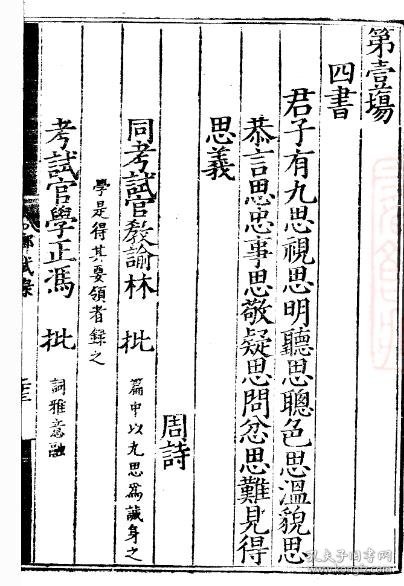 第壹塲
四書
君子有九思視思明聽思聰色思溫貌思
恭言思忠事思敬疑思問忿思難見得
思義
周詩
同考試官教諭林　批　篇中以九思爲誠身之
學是得其要領者錄之
考試官學正馮　批　詞雅意融
鄉試錄
孔夫子旧书网